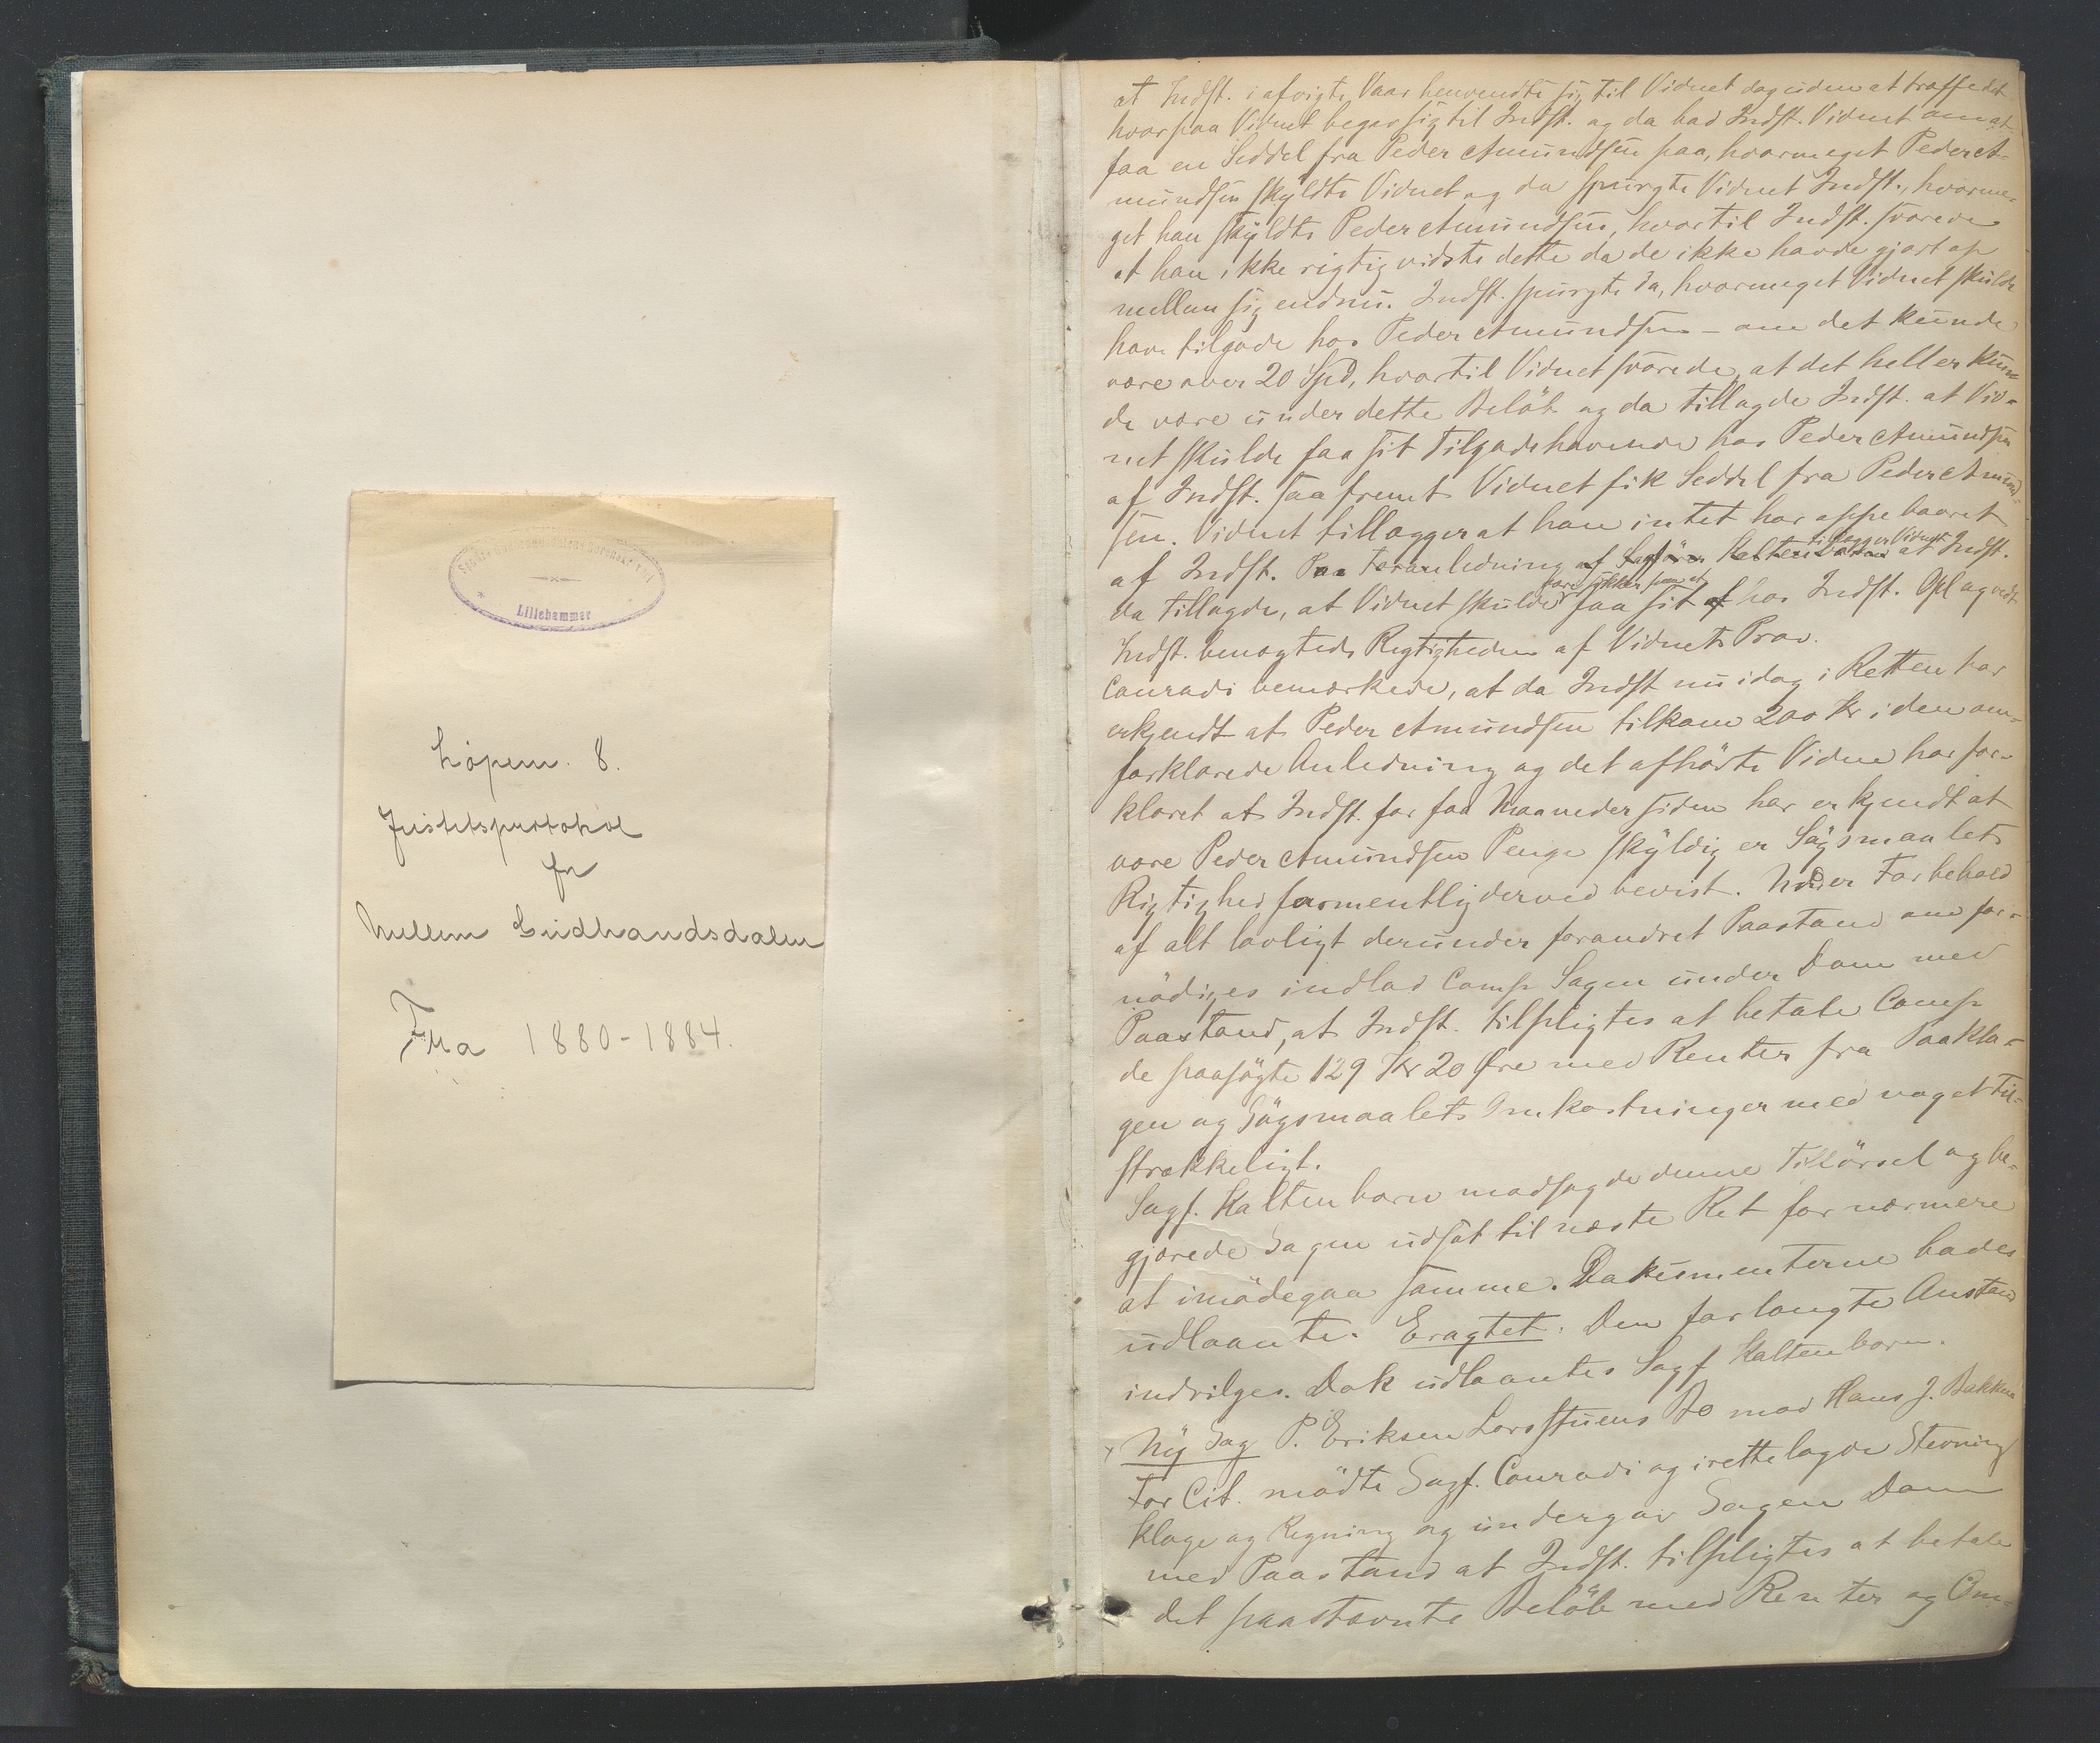 Lillehammer
Löpenr. 8.
Justitsprotokol
for
Mellem Gudbrandsdalen
Fra 1880-1884.
at Indst. i afvigte Vaar henvendte sig til Vidnet dog uden at træffe det
hvorpaa Vidnet begav sig til Indst. og da bad Indst. Vidnet om at
faa en Seddel fra Peder Amundsen paa, hvormeget Peder A-
mundsen skyldte Vidnet og da spurgte Vidnet Indst., hvorme-
get han skyldte Peder Amundsen, hvortil Indst. svarede
at han ikke rigtig vidste dette da de ikke havde gjort op
mellem sig endnu. Indst. spurgte da, hvormeget Vidnet skulde
have tilgode hos Peder Amundsen - om det kunde
være over 20 Spd, hvortil Vidnet svarede, at det heller kun-
de være under dette Beløb og da tillagde Indst. at Vid-
net skulde faa sit Tilgodehavende hos Peder Amundsen
af Indst. saafremt Vidnet fik Seddel fra Peder Amund-
sen. Vidnet tillægger at han intet har oppebaaret
af Indst. Paa Foranledning af Sagfører Kaltenborn tillægger Vidnet at Indst.
da tillagde, at Vidnet skulde være sikker paa at faa sit hos Indst. Opl og vedt
Indst. benægtede Rigtigheden af Vidnets Prov.
Conradi bemærkede, at da Indst nu idag i Retten har
erkjendt at Peder Amundsen tilkom 200 Kr i den om-
forklarede Anledning og det afhørte Vidne har for-
klaret at Indst. for faa Maaneder siden har erkjendt at
være Peder Amundsen Penge skyldig er Søgsmaalets
Rigtighed formentlig derved bevist. Under Forbehold
af alt lovligt derunder forandret Paastand om for-
nødiges indlod Comp Sagen under Dom med
Paastand, at Indst. tilpligtes at betale Comp
de paasøgte 129 Kr 20 Øre med Renter fra Paakla-
gen og Søgsmaalets Omkostninger med noget til-
strækkeligt.
Sagf. Kaltenborn modsagde denne Tilførsel og be-
gjærede Sagen udsat til næste Ret for nærmere
at imødegaa samme. Dokumenterne bades
udlaante. Eragtet: Den forlangte Anstand
indvilges. Dok udlaantes Sagf Kaltenborn.
Ny Sag P. Eriksen Larsstuens Bo mod Hans J. Bakken
For Cit. mødte Sagf. Conradi og irettelagde Stevning
Klage og Regning og undergav Sagen Dom
med Paastand at Indst. tilpligtes at betale
det paastævnte Beløb med Renter og Om-